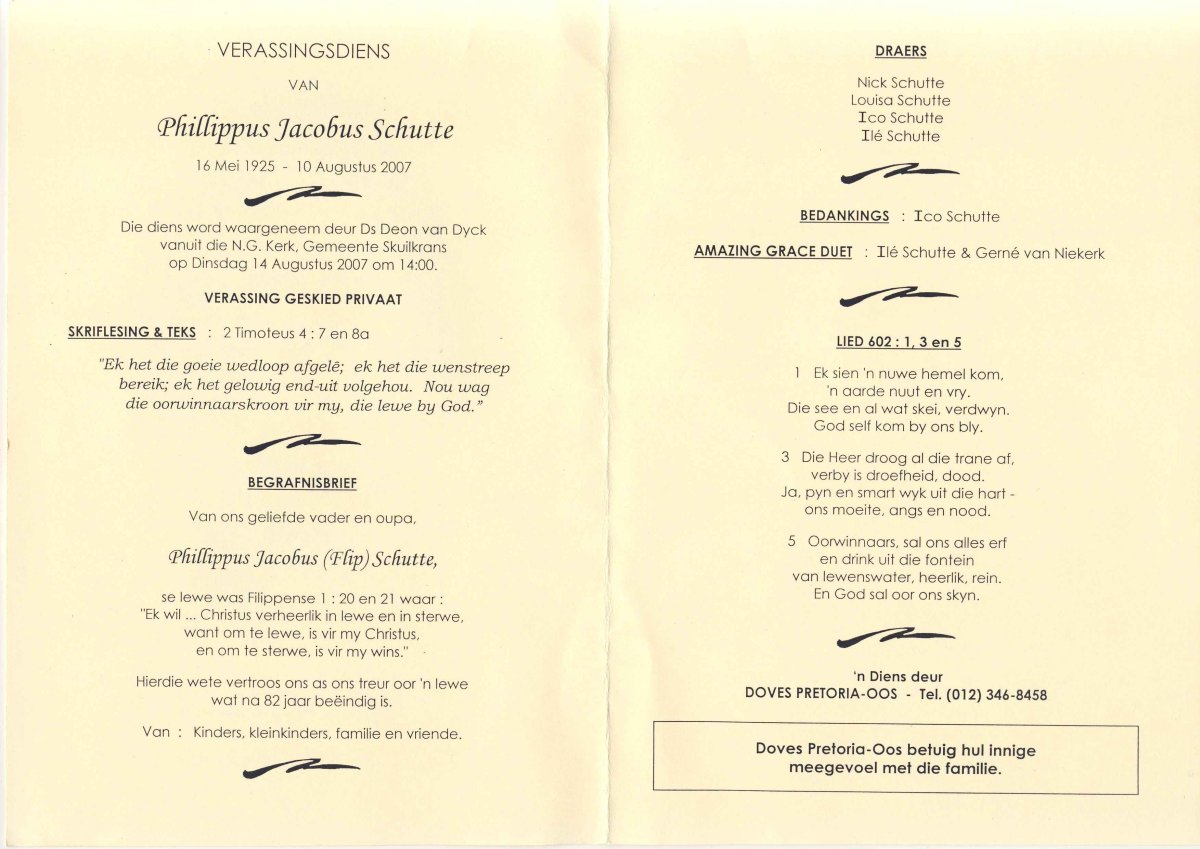 VERASSINGSDIENS
VAN
Phillippus Jacobus Schutte
16 Mei 1925 - 10 Augustus 2007
Die diens word waargeneem deur Ds Deon van Dyck
vanuit die N.G. Kerk, Gemeente Skuilkrans
op Dinsdag 14 Augustus 2007 om 14:00.
VERASSING GESKIED PRIVAAT
SKRIFLESING & TEKS : 2 Timoteus 4 : 7 en 8a
"Ek het die goeie wedloop afgelê; ek het die wenstreep
bereik; ek het gelowig end-uit volgehou. Nou wag
die oorwinnaarskroon vir my, die lewe by God."
BEGRAFNISBRIEF
Van ons geliefde vader en oupa,
Phillippus Jacobus (Flip) Schutte,
se lewe was Filippense 1 : 20 en 21 waar :
"Ek wil ... Christus verheerlik in lewe en in sterwe,
want om te lewe, is vir my Christus,
en om te sterwe, is vir my wins."
Hierdie wete vertroos ons as ons treur oor 'n lewe
wat na 82 jaar beëindig is.
Van : Kinders, kleinkinders, familie en vriende.
DRAERS
Nick Schutte
Louisa Schutte
Ico Schutte
Ilé Schutte
BEDANKINGS : Ico Schutte
AMAZING GRACE DUET : Ilé Schutte & Gerné van Niekerk
LIED 602 : 1, 3 en 5
1 Ek sien 'n nuwe hemel kom,
'n aarde nuut en vry.
Die see en al wat skei, verdwyn.
God self kom by ons bly.
3 Die Heer droog al die trane af,
verby is droefheid, dood.
Ja, pyn en smart wyk uit die hart -
ons moeite, angs en nood.
5 Oorwinnaars, sal ons alles erf
en drink uit die fontein
van lewenswater, heerlik, rein.
En God sal oor ons skyn.
'n Diens deur
DOVES PRETORIA-OOS - Tel. (012) 346-8458
Doves Pretoria-Oos betuig hul innige
meegevoel met die familie.